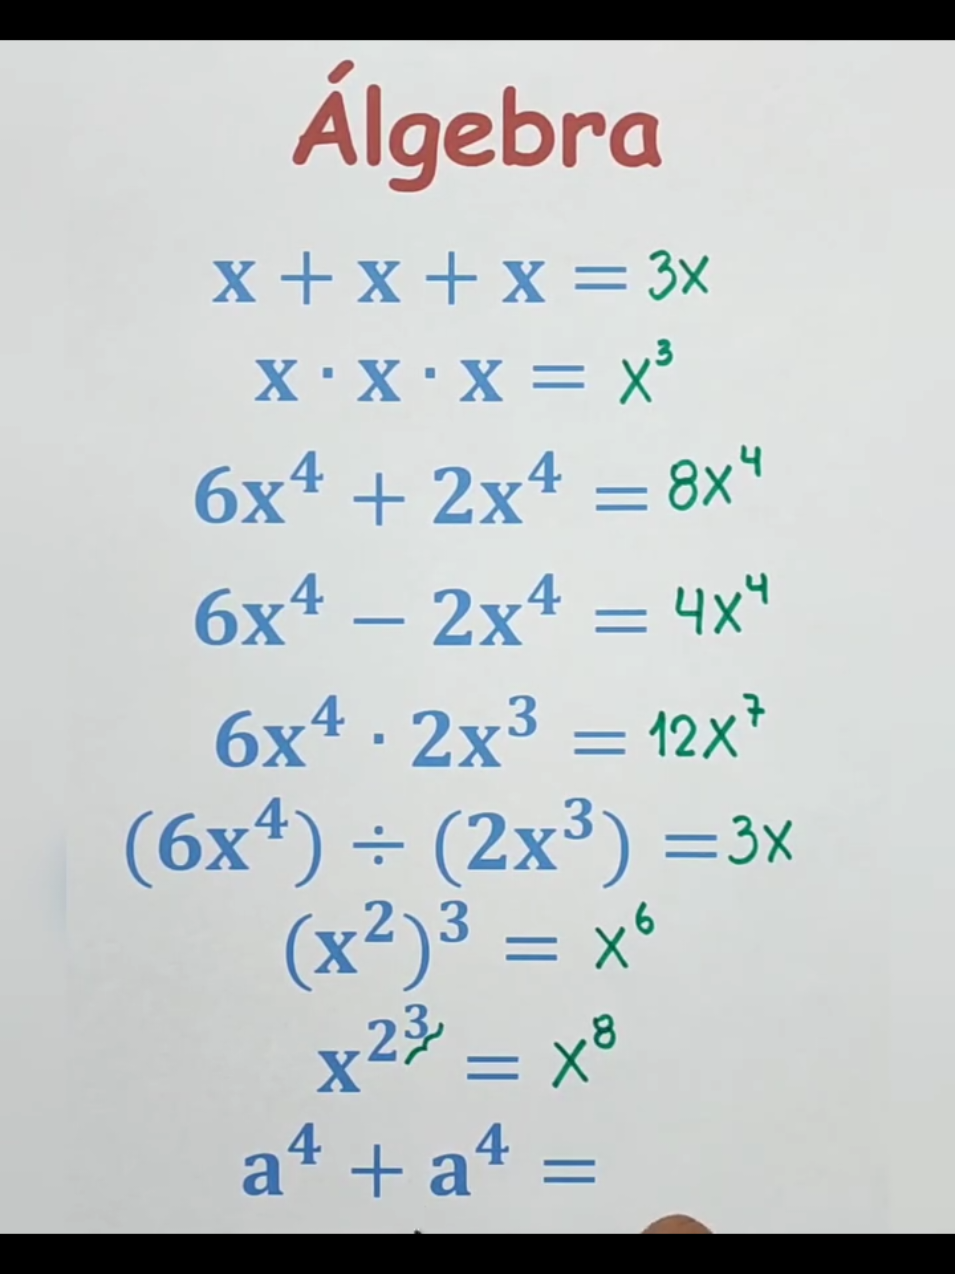 Álgebra
x + x + x = 3x
x · x · x = x³
6x⁴ + 2x⁴ = 8x⁴
6x⁴ − 2x⁴ = 4x⁴
6x⁴ · 2x³ = 12x⁷
(6x⁴) ÷ (2x³) = 3x
(x²)³ = x⁶
x^2^3 = x⁸
a⁴ + a⁴ =